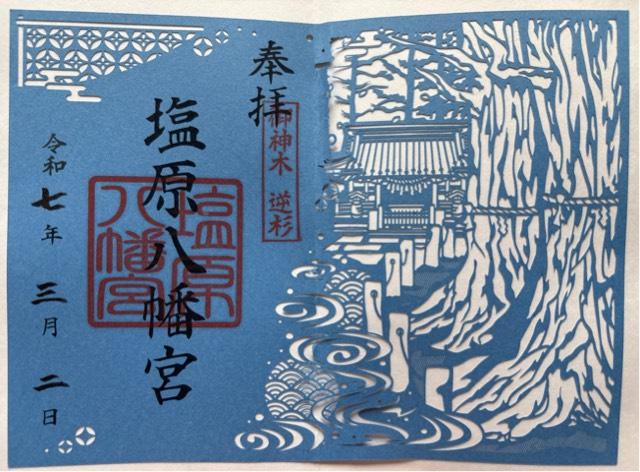 奉拝
御神木 逆杉
塩原八幡宮
塩原
八幡宮
令和七年 三月 二日